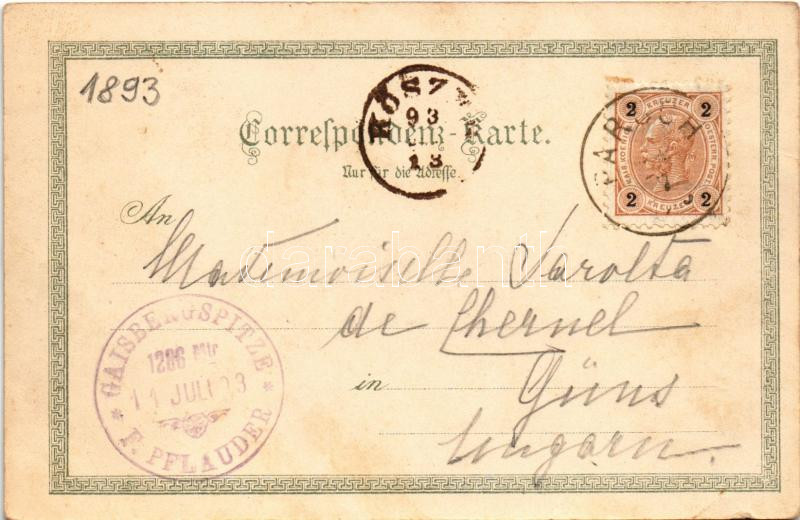 1893
KŐSZEG
93
13
2 KREUZER 2
KAIS. KOENIGL. OESTERR. POST
2 KREUZER 2
PARSCH
Correspondenz-Karte.
Nur für die Adresse.
An
Mademoiselle Sarolta
de Chernel
in Güns
Ungarn.
darabanth
GAISBERGSPITZE
1286 Mtr
11 JULI 93
F. PFLAUDER